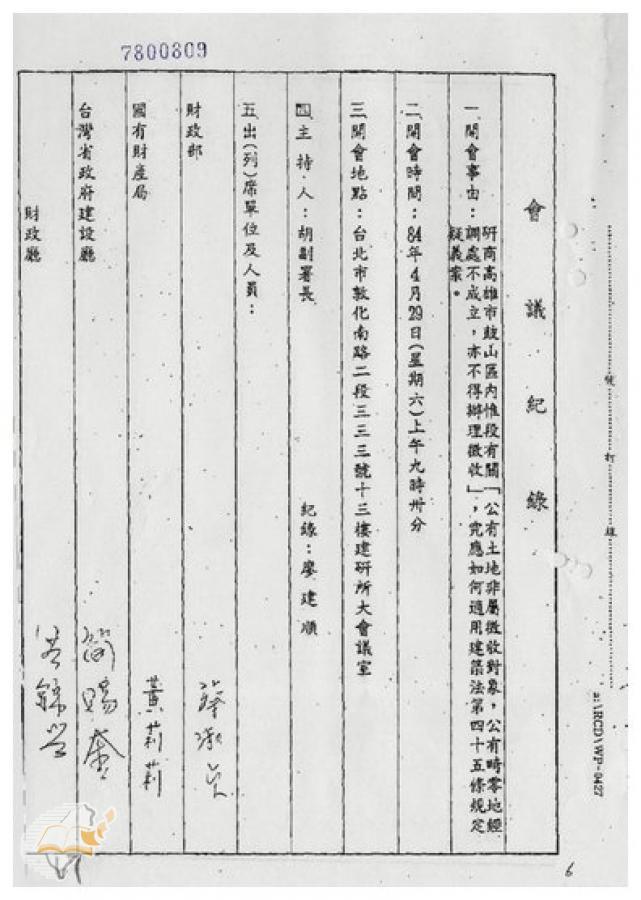 7800809
會議紀錄
一、開會事由：研商高雄市鼓山區內惟段有關「公有土地非屬徵收對象，公有畸零地經
調處不成立，亦不得辦理徵收」，究應如何適用建築法第四十五條規定
疑義案。
二、開會時間：84年4月29日(星期六)上午九時卅分
三、開會地點：台北市敦化南路二段三三三號十三樓建研所大會議室
四、主持人：胡副署長　紀錄：廖建順
五、出(列)席單位及人員：
財政部
國有財產局　黃莉莉
台灣省政府建設廳
財政廳
號 打 線
a:\RCD\WP-0427
6